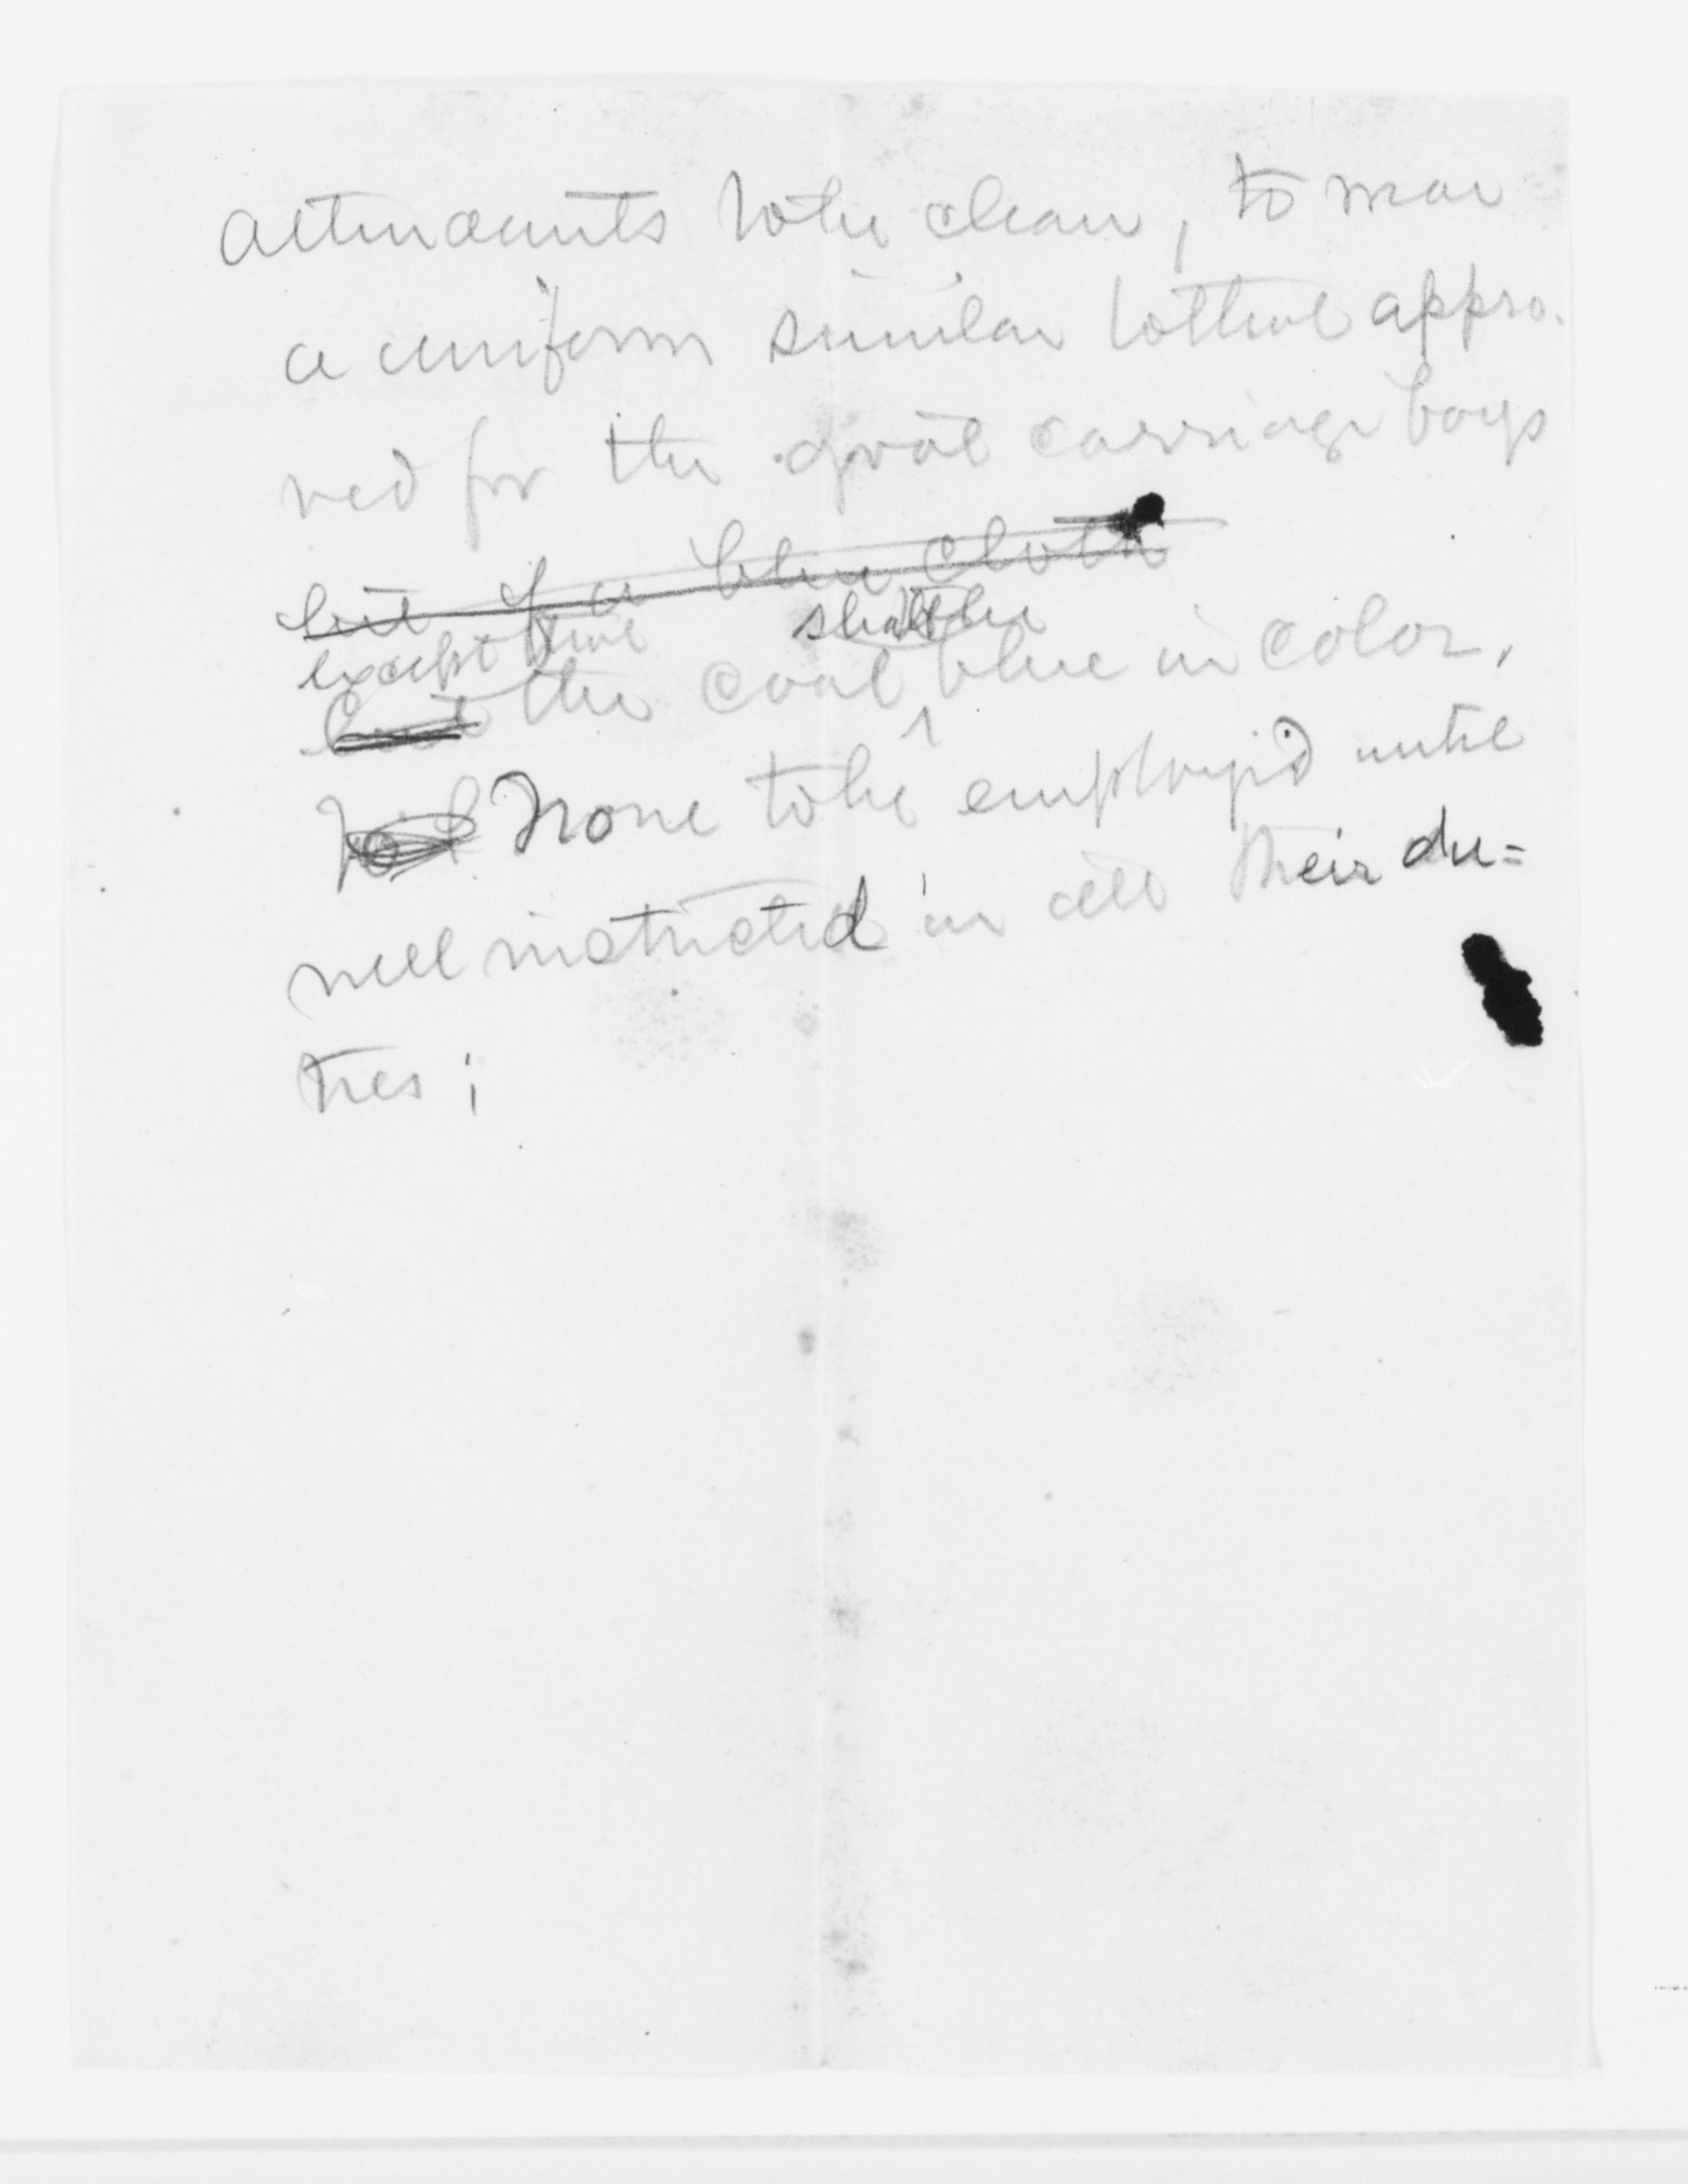 attendants to be clean, to wear
a uniform similar to that appro-
ved for the goat carriage boys
but of a blue cloth
except that shall be
but the coat blue in color,
None to be employed until
well instructed in all their du=
ties;